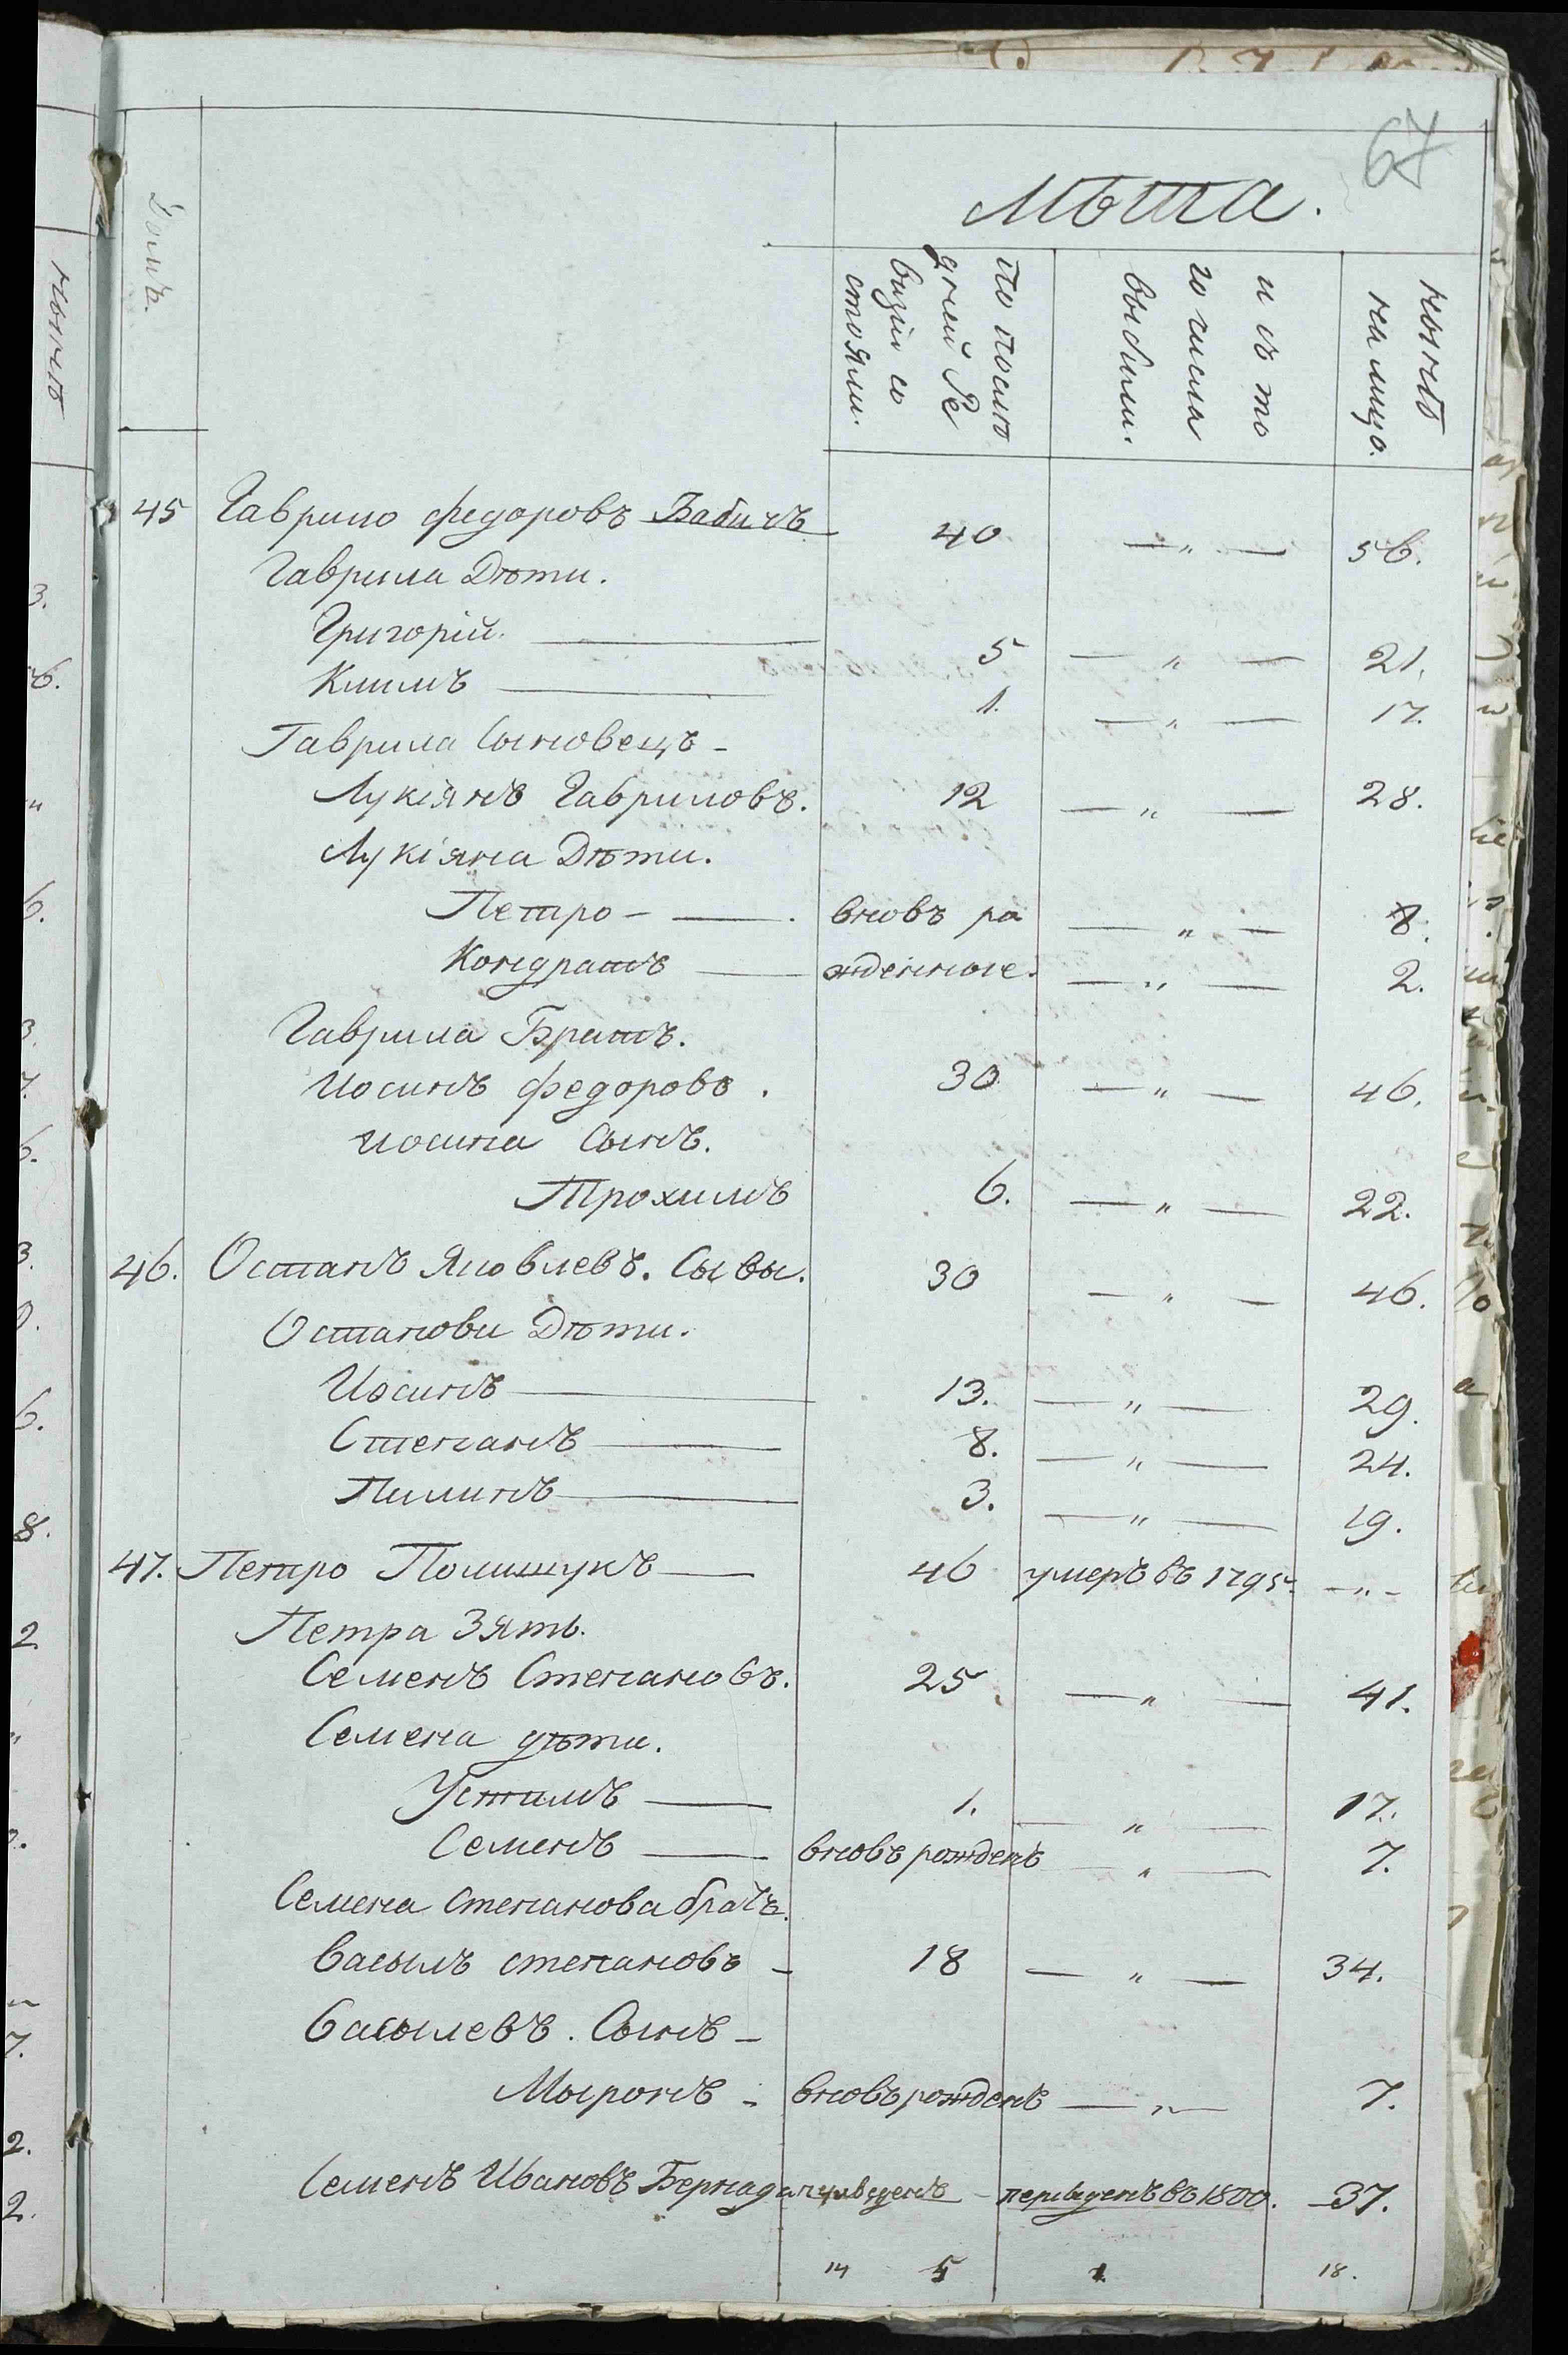 67
Лѣта.
Домъ.
по послѣдней Ревизіи состояли.
изъ того числа выбыли.
нынѣ на лицо.
45 Гаврило Федоровъ Бабичъ 40 — „ — 56.
Гаврила Дѣти.
Григорій. 5 — „ — 21.
Климъ 1. — „ — 17.
Гаврила Сыновецъ -
Лукіянъ Гавриловъ. 12 — „ — 28.
Лукіяна Дѣти.
Петро - вновъ ро — „ — 8.
Кондратъ жденные. — „ — 2.
Гаврила Братъ.
Иосипъ Федоровъ. 30 — „ — 46.
Иосипа Сынъ.
Трохимъ 6. — „ — 22.
46. Остапъ Яковлевъ. Сывы. 30 — „ — 46.
Остапови Дѣти.
Иосипъ 13. — „ — 29.
Степанъ 8. — „ — 24.
Пилипъ 3. — „ — 19.
47. Петро Полищукъ 46 умеръ въ 1795. - „ -
Петра Зять.
Семенъ Степановъ. 25 — „ — 41.
Семена дѣти.
Устимъ 1. — „ — 17.
Семенъ вновъ рожденъ — „ — 7.
Семена Степанова братъ.
Васылъ Степановъ - 18 — „ — 34.
Васылевъ. Сынъ -
Мыронъ - вновъ рожденъ — „ — 7.
Семенъ Ивановъ переведенъ въ 1800. 37.
14 5 1 18.